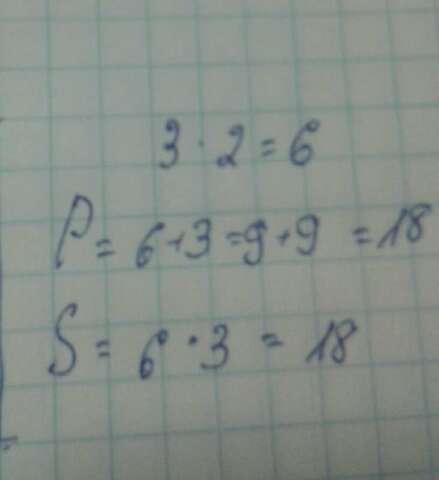 3 · 2 = 6
P = 6 + 3 = 9 + 9 = 18
S = 6 · 3 = 18